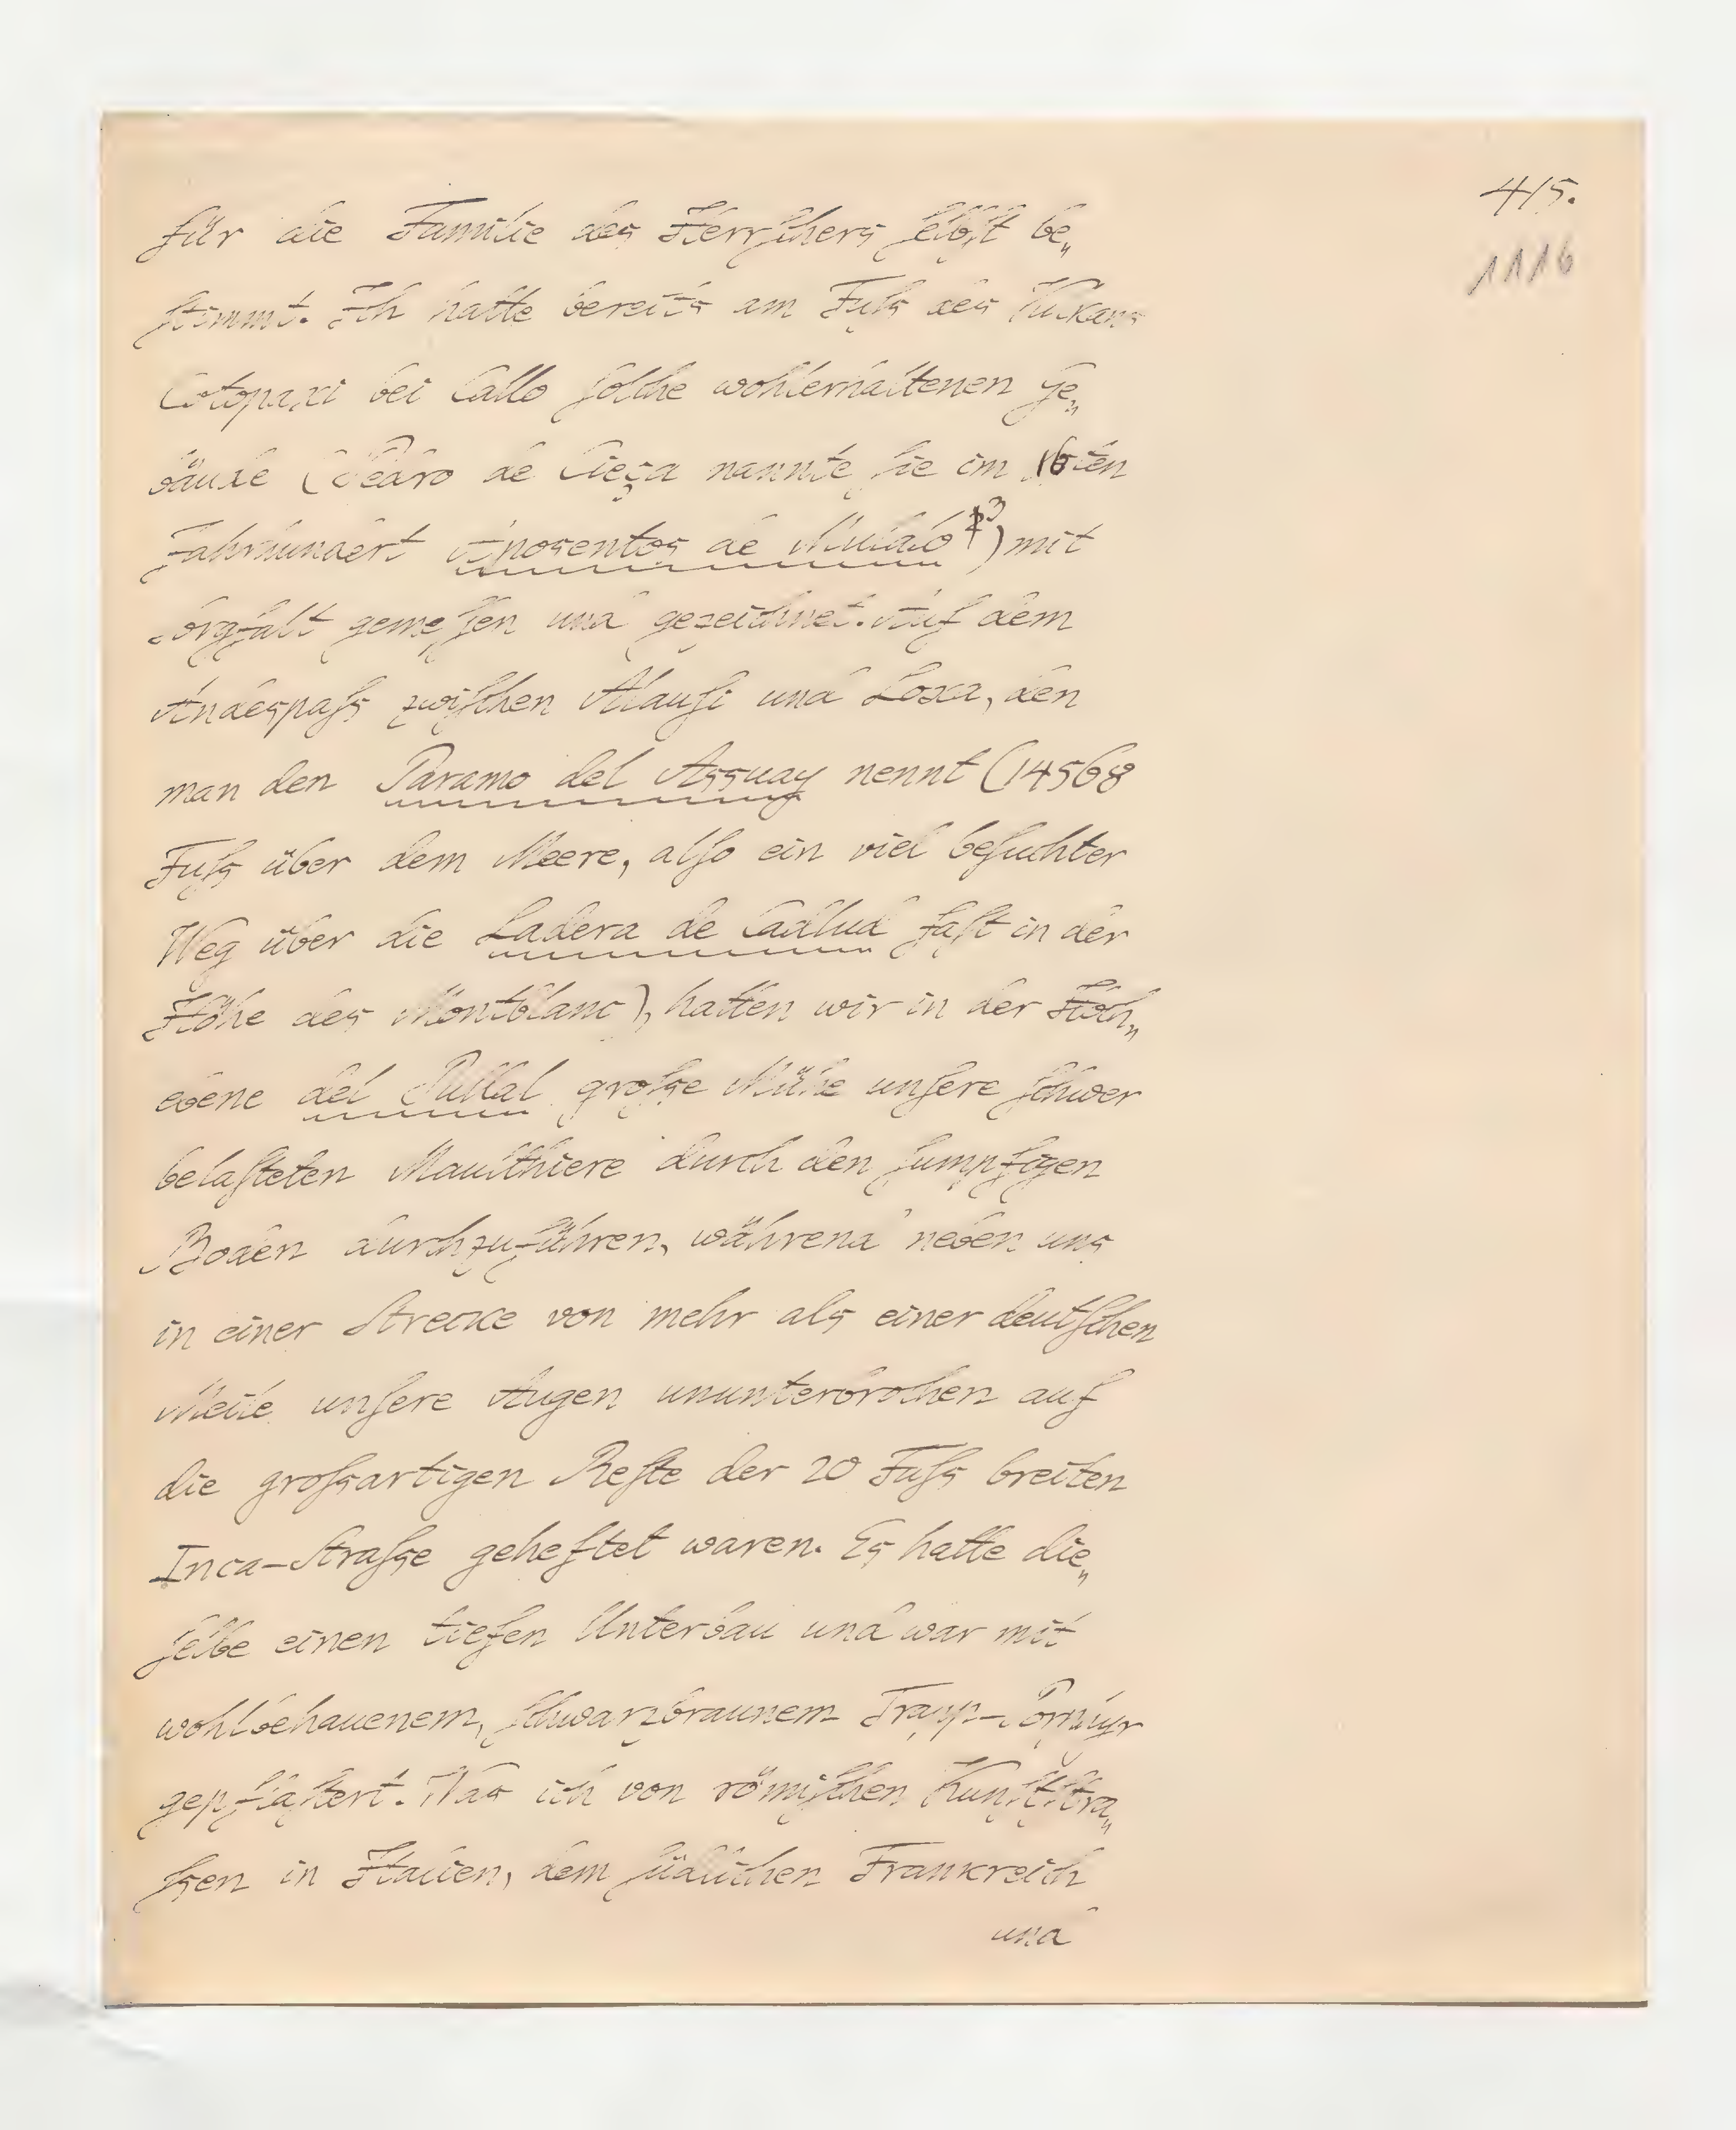 415.
1116
für die Familie des Herrſchers ſelbſt be„
ſtimmt. Ich hatte bereits am Fuſs des Vulkans
Cotopaxi bei Callo ſolche wohlerhaltenen Ge„
bäude (Pedro de Cieça nannte ſie im 16ten
Jahrhundert Aposentos de Mulaló 3) mit
Sorgfalt gemeſſen und gezeichnet. Auf dem
Andespaſs zwiſchen Alauſi und Loxa, den
man den Paramo del Assuay nennt (14568
Fuſs über dem Meere, alſo ein viel beſuchter
Weg über die Ladera de Cadlud faſt in der
Höhe des Montblanc), hatten wir in der Hoch„
ebene del Pullal groſse Mühe unſere ſchwer
belaſteten Maulthiere durch den ſumpfigen
Boden durchzuführen, während neben uns
in einer Strecke von mehr als einer deutſchen
Meile unſere Augen ununterbrochen auf
die groſsartigen Reſte der 20 Fuſs breiten
Inca-Straſse geheftet waren. Es hatte die„
ſelbe einen tiefen Unterbau und war mit
wohlbehauenem, ſchwarzbraunem Trapp-Porphyr
gepflaſtert. Was ich von römiſchen Kunſtſtra„
ſsen in Italien, dem ſüdlichen Frankreich
und